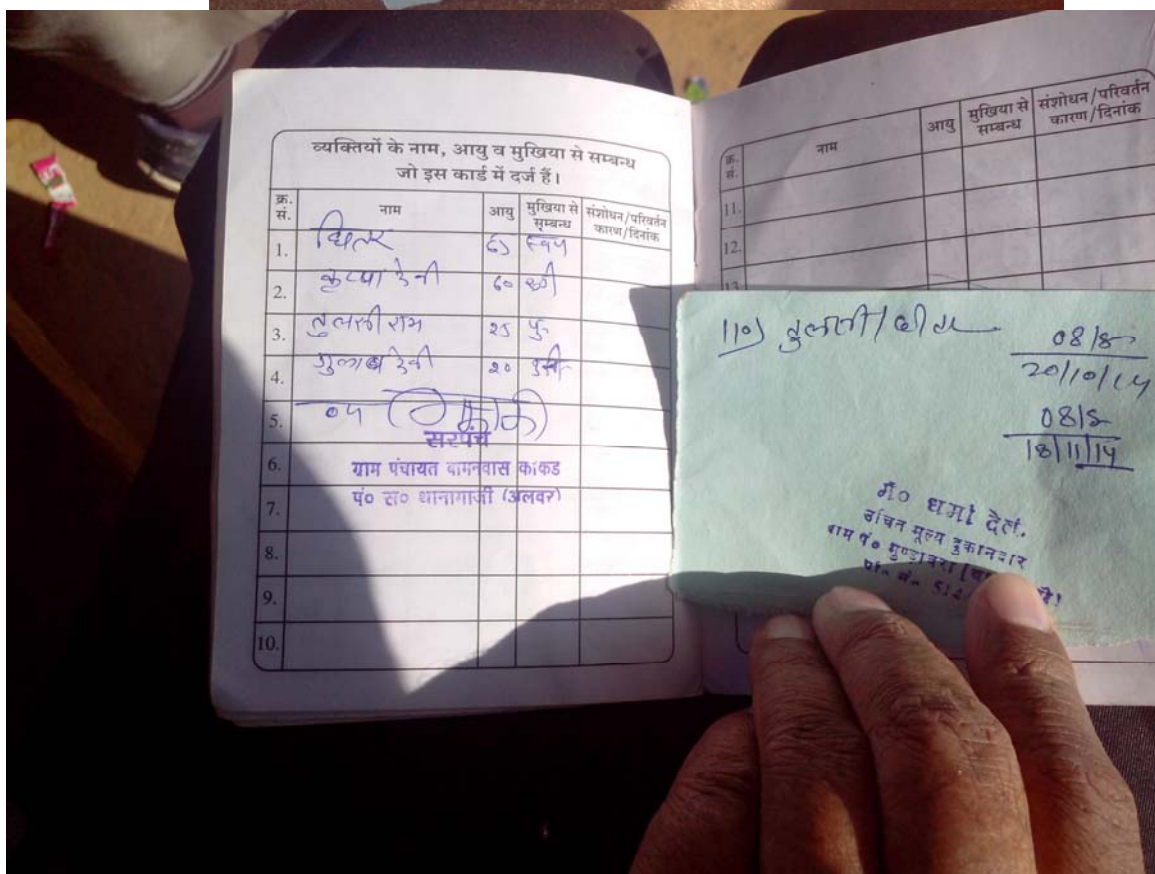 व्यक्तियों के नाम, आयु व मुखिया से सम्बन्ध
जो इस कार्ड में दर्ज हैं।
क्र. सं. नाम आयु मुखिया से सम्बन्ध संशोधन/परिवर्तन कारण/दिनांक
1.
2. देवी 60 स्त्री
3. तुलसीराम 25 पु
4. गुलाब देवी 20
5. 04
सरपंच
6. ग्राम पंचायत बामनवास कांकड
7. पं० स० थानागाजी (अलवर)
8.
9.
10.
क्र. सं. नाम आयु मुखिया से सम्बन्ध संशोधन/परिवर्तन कारण/दिनांक
11.
12.
13
110) तुलसी/
20/10/14
18/11/14
उचित मूल्य दुकानदार
ग्राम पं० मुण्डावरा